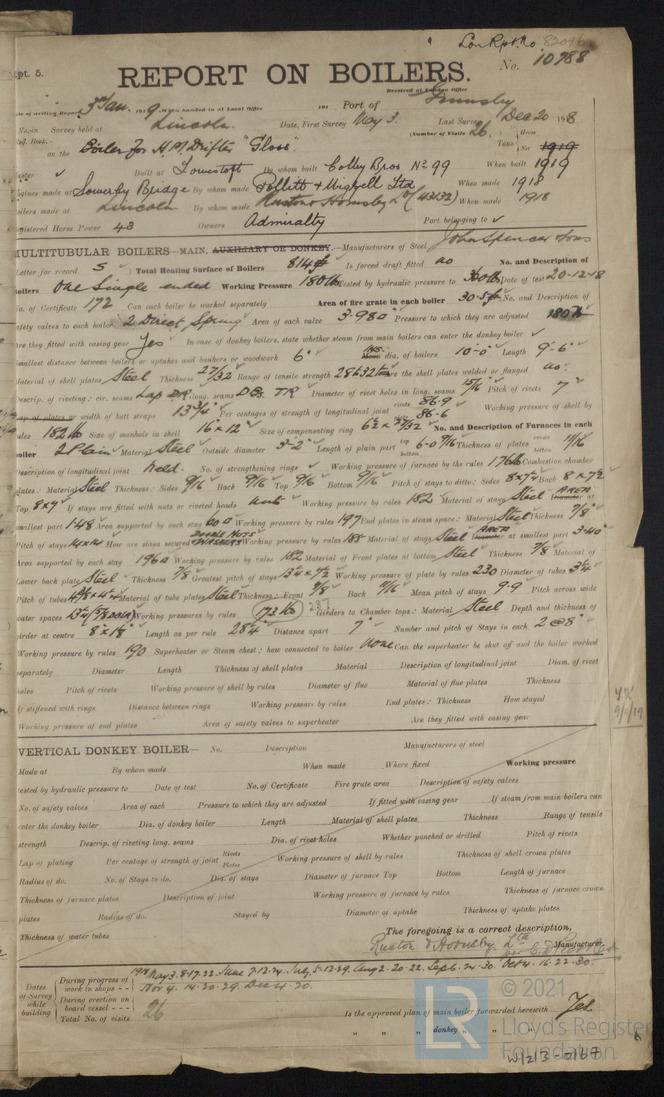 Lon Rpt. No 82096
Rpt. 5.
No. 10988
REPORT ON BOILERS.
Received at London Office
Date of writing Report 3rd Jan. 1919 When handed in at Local Office 191 Port of Grimsby
No. in Survey held at Lincoln. Date, First Survey May 3. Last Survey Dec 20 1918
Reg. Book. (Number of Visits 26
on the Boiler for H.M. Drifter "Gloss" Tons Gross Net
Master ✓ Built at Lowestoft By whom built Colby Bros No 99 When built 1919
Engines made at Sowerby Bridge By whom made Pollitt & Wigzell Ltd When made 1918
Boilers made at Lincoln By whom made Ruston & Hornsby Ld (43132) When made 1918
Registered Horse Power 43 Owners Admiralty Port belonging to ✓
MULTITUBULAR BOILERS—MAIN, AUXILIARY OR DONKEY.—Manufacturers of Steel John Spencer & Sons
Letter for record S Total Heating Surface of Boilers 814 Is forced draft fitted no No. and Description of
Boilers One Single ended Working Pressure 180 lb Tested by hydraulic pressure to 360 lb Date of test 20-12-18
No. of Certificate 172 Can each boiler be worked separately Area of fire grate in each boiler 30.5 No. and Description of
safety valves to each boiler 2 Direct Spring Area of each valve 3.980 Pressure to which they are adjusted 180 lb
Are they fitted with easing gear Yes In case of donkey boilers, state whether steam from main boilers can enter the donkey boiler ✓
Smallest distance between boilers or uptakes and bunkers or woodwork 6" dia. of boilers 10-0" Length 9-6"
Material of shell plates Steel Thickness 27/32 Range of tensile strength 28 & 32 tons Are the shell plates welded or flanged no.
Descrip. of riveting: cir. seams Lap DR long. seams DBS TR Diameter of rivet holes in long. seams 15/16 Pitch of rivets 7"
Lap of plates or width of butt straps 13 3/4 Per centages of strength of longitudinal joint rivets 86.9 plate 86.6 Working pressure of shell by
rules 182 lb Size of manhole in shell 16 x 12" Size of compensating ring 6 1/2 x 27/32 No. and Description of Furnaces in each
boiler 2 Plain Material Steel Outside diameter 3-2" Length of plain part top bottom 6-0 9/16 Thickness of plates crown bottom 11/16
Description of longitudinal joint Weld. No. of strengthening rings ✓ Working pressure of furnace by the rules 176 lb Combustion chamber
plates: Material Steel Thickness: Sides 9/16 Back 9/16 Top 9/16 Bottom 9/16 Pitch of stays to ditto: Sides 8 x 7 1/2 Back 8 x 7 1/2
Top 8 x 7 If stays are fitted with nuts or riveted heads nuts Working pressure by rules 182 Material of stays Steel Area at
smallest part 1.48 Area supported by each stay 60 Working pressure by rules 197 End plates in steam space: Material Steel Thickness 7/8"
Pitch of stays 14 x 14 How are stays secured Double Nuts & Washers Working pressure by rules 188 Material of stays Steel Area at smallest part 3.40
Area supported by each stay 196 Working pressure by rules 182 Material of Front plates at bottom Steel Thickness 7/8 Material of
Lower back plate Steel Thickness 7/8 Greatest pitch of stays 13 1/4 x 7 1/2 Working pressure of plate by rules 230 Diameter of tubes 3 1/4
Pitch of tubes Material of tube plates Steel Thickness: Front 7/8 Back 11/16 Mean pitch of stays 9.9 Pitch across wide
water spaces 13 1/4 Working pressures by rules 173 lb 287 Girders to Chamber tops: Material Steel Depth and thickness of
girder at centre 8" x 1 1/8" Length as per rule 28 1/4 Distance apart 7" Number and pitch of Stays in each 2 @ 8"
Working pressure by rules 190 Superheater or Steam chest; how connected to boiler none Can the superheater be shut off and the boiler worked
separately Diameter Length Thickness of shell plates Material Description of longitudinal joint Diam. of rivet
holes Pitch of rivets Working pressure of shell by rules Diameter of flue Material of flue plates Thickness
If stiffened with rings Distance between rings Working pressure by rules End plates: Thickness How stayed
Working pressure of end plates Area of safety valves to superheater Are they fitted with easing gear
VERTICAL DONKEY BOILER— No. Description Manufacturers of steel
Made at By whom made When made Where fixed Working pressure
tested by hydraulic pressure to Date of test No. of Certificate Fire grate area Description of safety valves
No. of safety valves Area of each Pressure to which they are adjusted If fitted with easing gear If steam from main boilers can
enter the donkey boiler Dia. of donkey boiler Length Material of shell plates Thickness Range of tensile
strength Descrip. of riveting long. seams Dia. of rivet holes Whether punched or drilled Pitch of rivets
Lap of plating Per centage of strength of joint Rivets Plates Working pressure of shell by rules Thickness of shell crown plates
Radius of do. No. of Stays to do. Dia. of stays Diameter of furnace Top Bottom Length of furnace
Thickness of furnace plates Description of joint Working pressure of furnace by rules Thickness of furnace crown
plates Radius of do. Stayed by Diameter of uptake Thickness of uptake plates
Thickness of water tubes
The foregoing is a correct description,
Ruston & Hornsby Ltd Manufacturer.
Dates of Survey while building
During progress of work in shops - - 1918 May 3. 8. 17. 22. June 7. 12. 24. July 5. 12. 29. Aug 2. 20. 22. Sept 6. 24. 30. Oct 4. 16. 22. 30.
Nov 4. 14. 20. 29. Dec 4. 20.
During erection on board vessel - - -
Total No. of visits 26
Is the approved plan of main boiler forwarded herewith Yes
" " " donkey " " "
© 2021
LR
Lloyd's Register
Foundation
W1213-0167